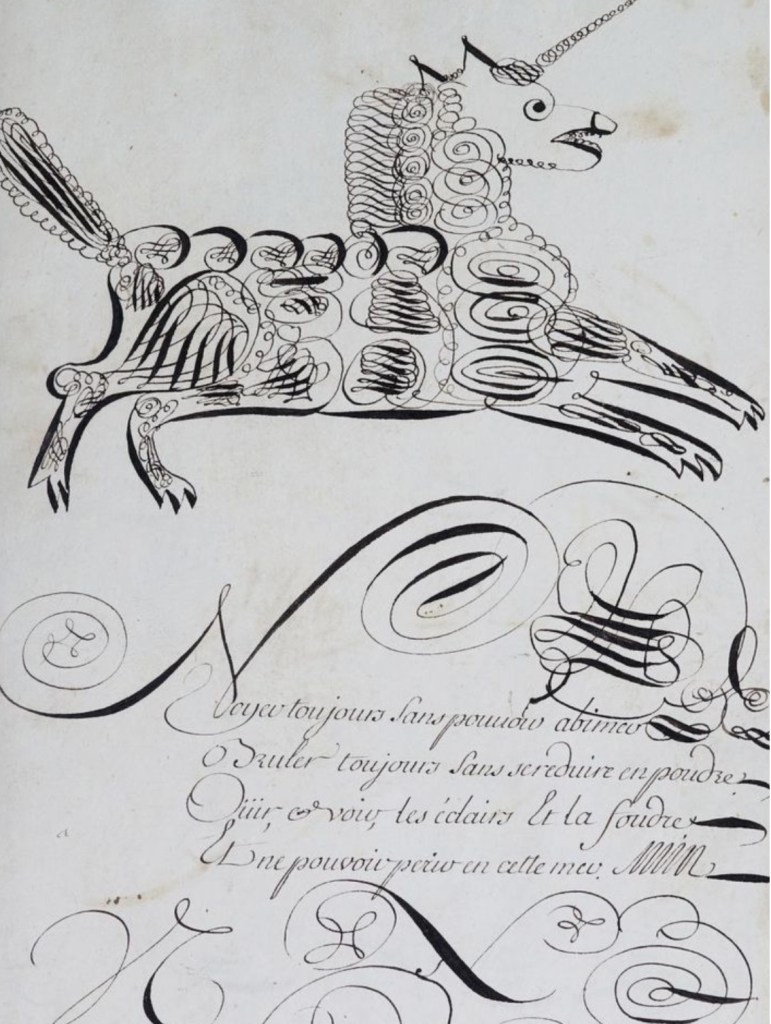 Noyer toujours sans pouuoir abimer
Bruler toujours sans se reduire en poudre,
Oüir, & voir, les éclairs Et la foudre
Et ne pouvoir perir en cette mer.